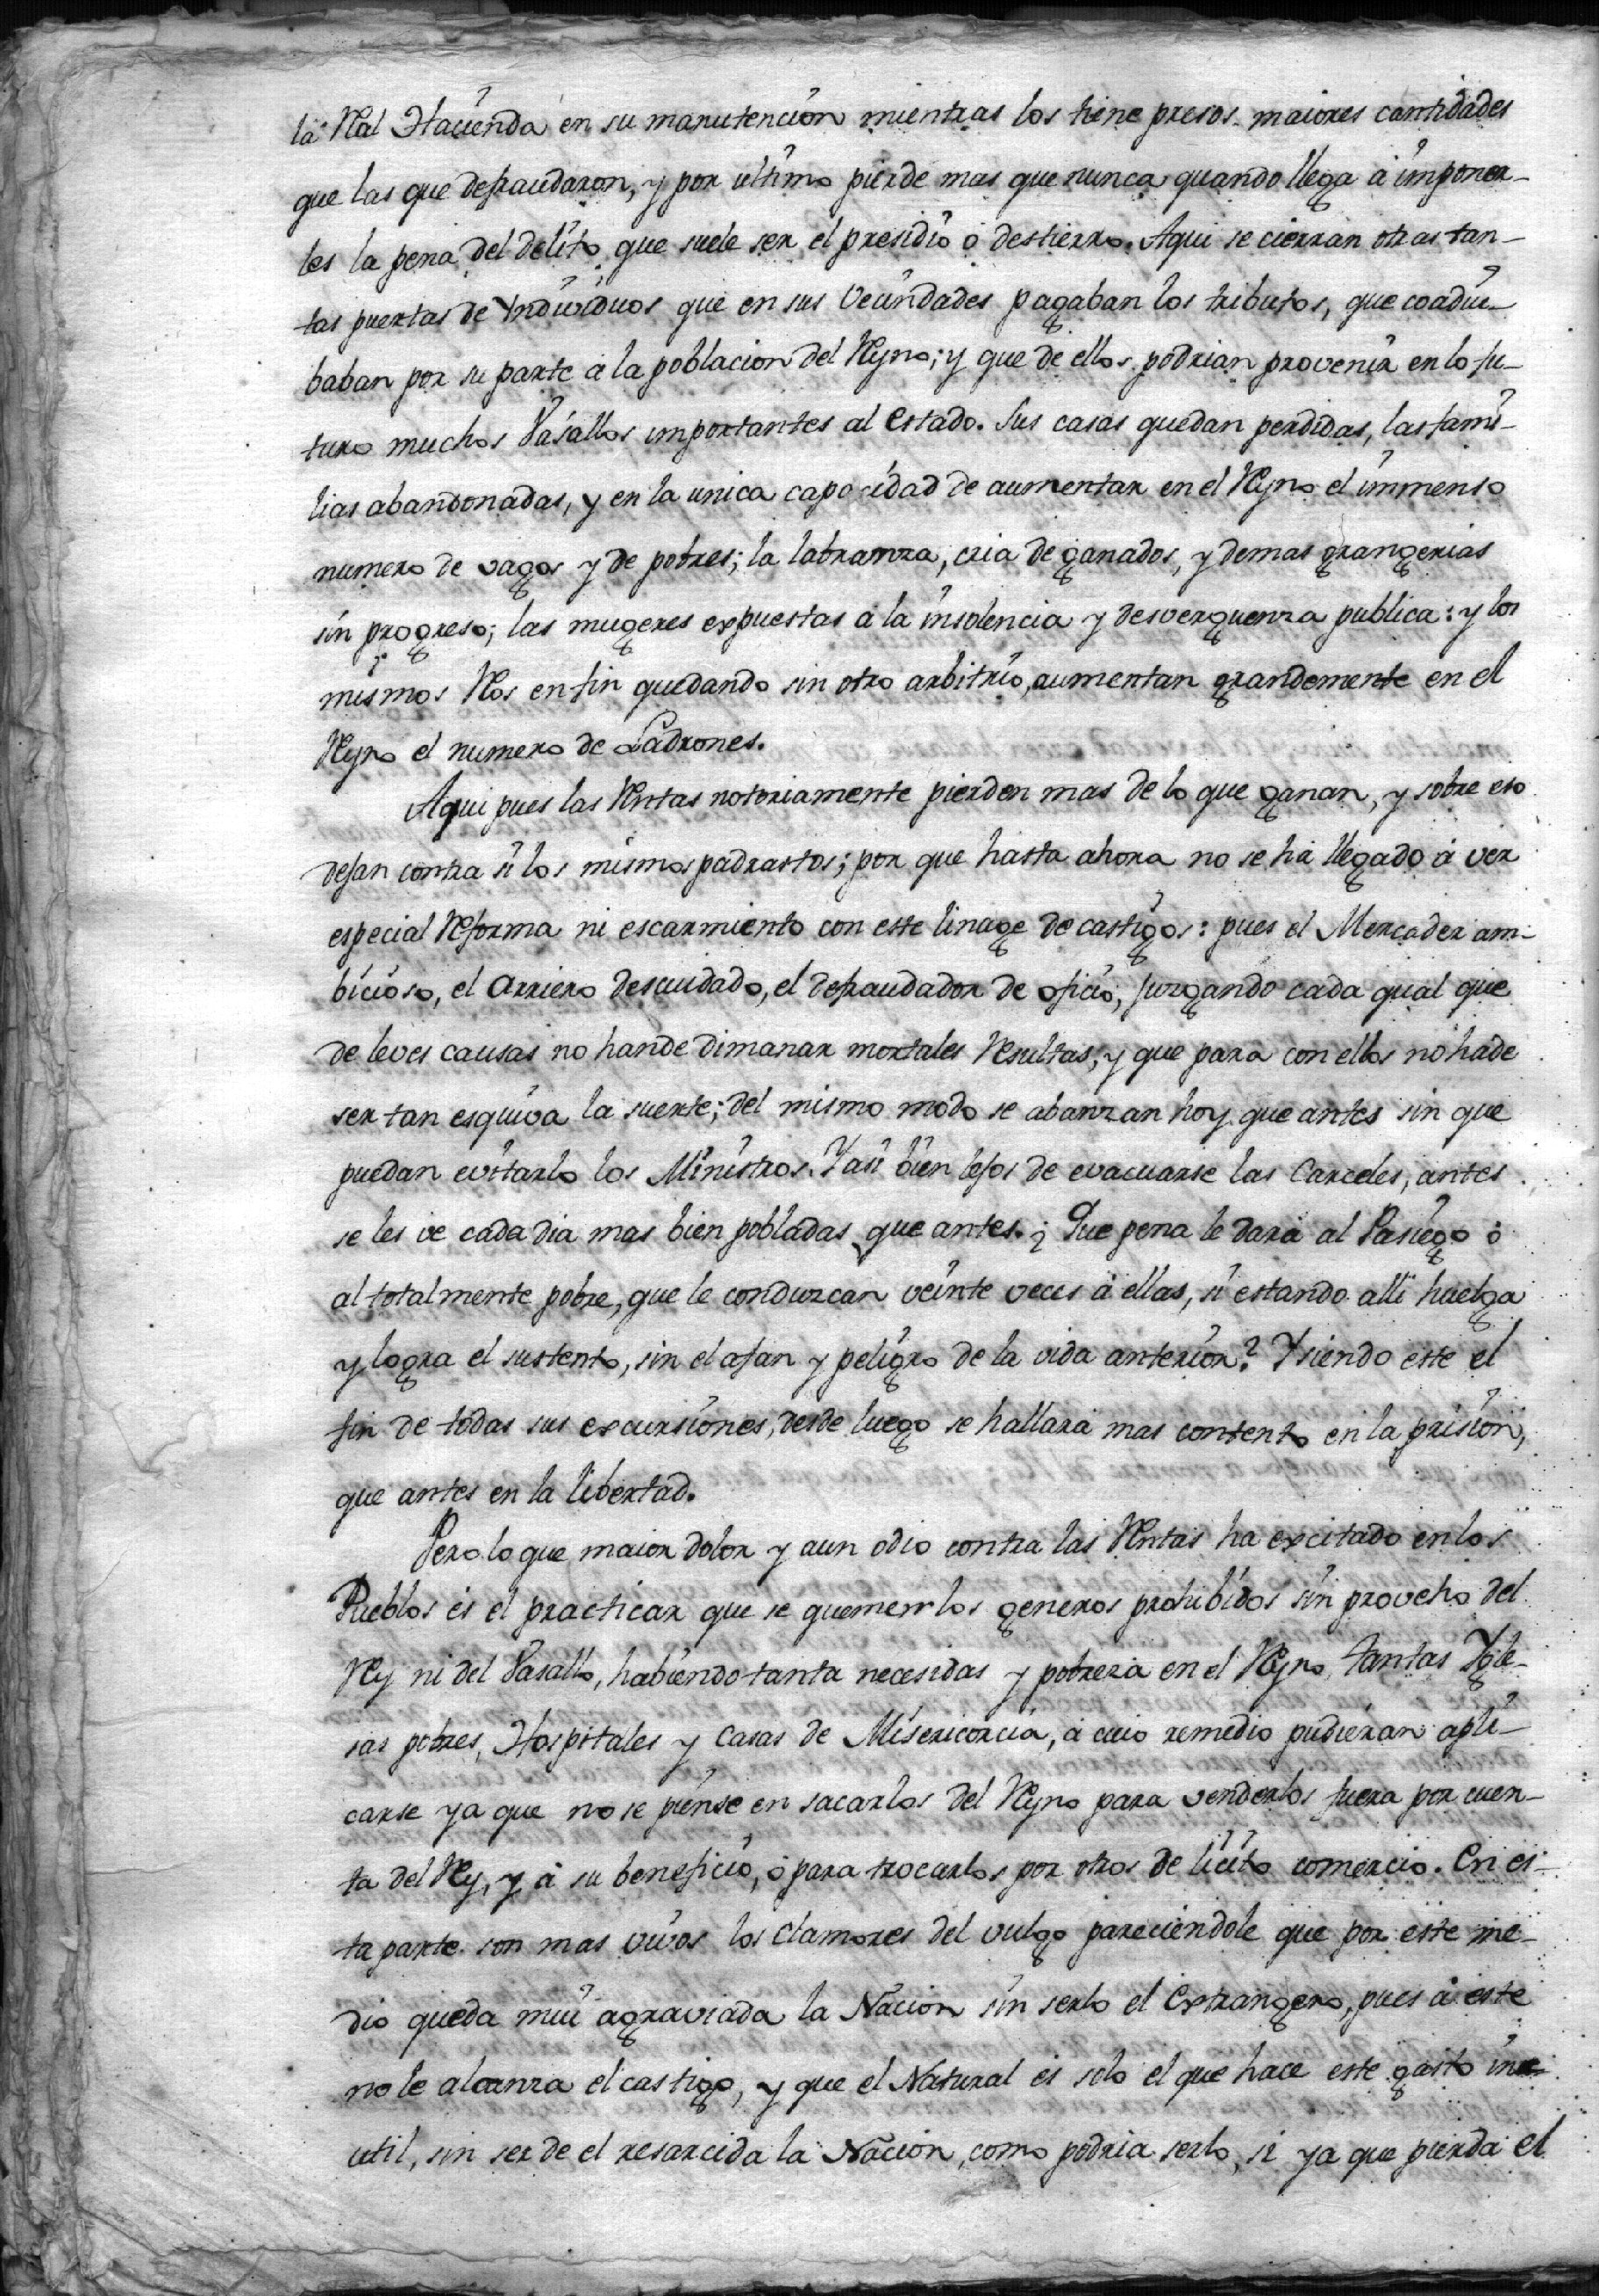 la Rl Hacienda en su manutencion mientras los tiene presos maiores cantidades
que las que defraudaron, y por ultimo pierde mas que nunca quando llega à imponer-
les la pena del delito que suele ser el presidio ò destierro. Aqui se cierran otras tan-
tas puertas de Individuos que en sus Vecindades pagaban los tributos, que coadiu-
baban por su parte à la poblacion del Reyno; y que de ellos podrian provenir en lo fu-
turo muchos Vasallos importantes al Estado. Sus casas quedan perdidas, las fami-
lias abandonadas, y en la unica capacidad de aumentar en el Reyno el immenso
numero de vagos y de pobres; la labranza, cria de ganados, y demas grangerias
sin progreso; las mugeres expuestas à la insolencia y desverguenza publica: y los
mismos Reos en fin quedando sin otro arbitrio, aumentan grandemente en el
Reyno el numero de Ladrones.
Aqui pues las Rentas notoriamente pierden mas de lo que ganan, y sobre eso
dejan contra si los mismos padrastos; por que hasta ahora no se ha llegado à ver
especial Reforma ni escarmiento con este linage de castigos: pues el Mercader am-
bicioso, el Arriero descuidado, el defraudador de oficio, juzgando cada qual que
de leves causas no han de dimanar mortales Resultas, y que para con ellos no ha de
ser tan esquiva la suerte; del mismo modo se abanzan hoy que antes sin que
puedan evitarlo los Ministros. Y asi bien lejos de evacuarse las Carceles, antes
se les ve cada dia mas bien pobladas que antes. ¿ Que pena le dara al Pasiego ò
al totalmente pobre, que le conduzcan veinte veces à ellas, si estando alli huelga
y logra el sustento, sin el afan y peligro de la vida anterior? Y siendo este el
fin de todas sus excursiones, desde luego se hallara mas contento en la prision,
que antes en la libertad.
Pero lo que maior dolor y aun odio contra las Rentas ha excitado en los
Pueblos es el practicar que se quemen los generos prohibidos sin provecho del
Rey ni del Vasallo, habiendo tanta necesidas y pobreza en el Reyno, tantas Igle-
sias pobres, Hospitales y Casas de Misericorcia, à cuio remedio pudieran apli-
carse ya que no se piense en sacarlos del Reyno para venderlos fuera por cuen-
ta del Rey, y à su beneficio, ò para trocarlos por otros de licito comercio. En es-
ta parte son mas vivos los clamores del vulgo pareciendole que por este me-
dio queda mui agraviada la Nacion sin serlo el Extrangero, pues à este
no le alcanza el castigo, y que el Natural es solo el que hace este gasto in-
util, sin ser de el resarcida la Nacion, como podria serlo, si ya que pierda el